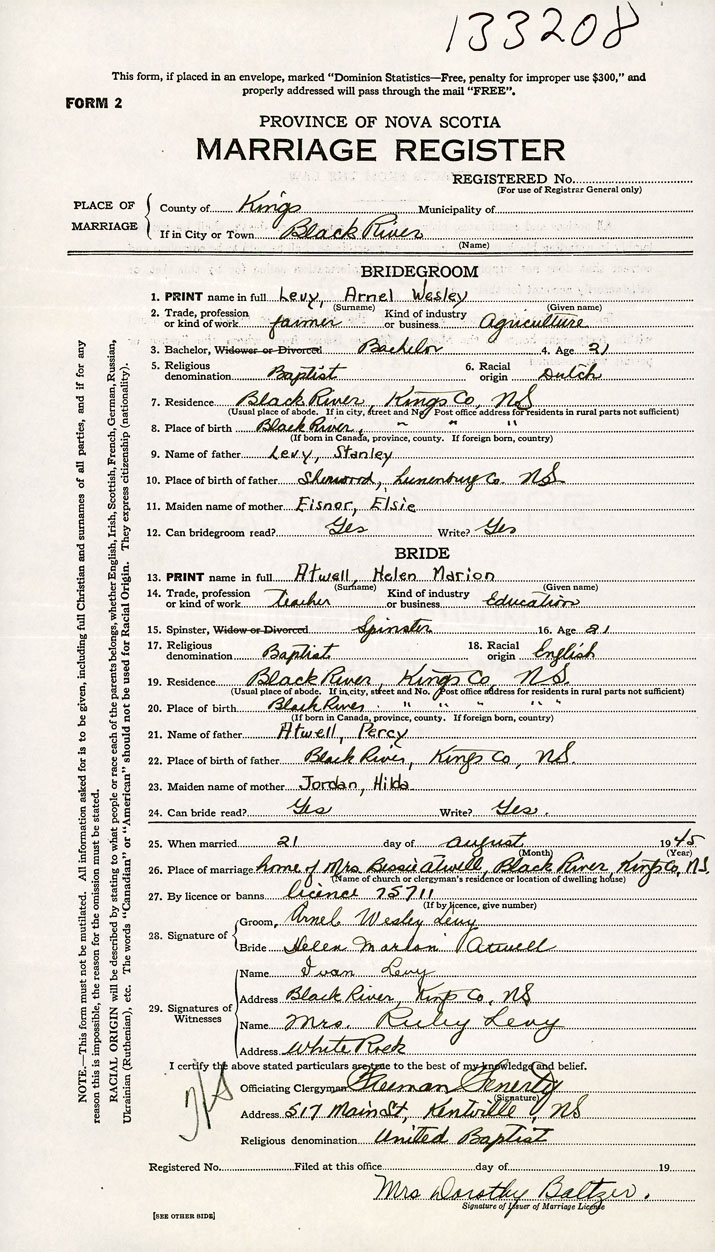 133208
This form, if placed in an envelope, marked “Dominion Statistics—Free, penalty for improper use $300,” and
properly addressed will pass through the mail “FREE”.
FORM 2
PROVINCE OF NOVA SCOTIA
MARRIAGE REGISTER
REGISTERED No.
(For use of Registrar General only)
PLACE OF MARRIAGE
County of Kings Municipality of
If in City or Town Black River
(Name)
BRIDEGROOM
1. PRINT name in full Levy, Arnel Wesley
(Surname) (Given name)
2. Trade, profession or kind of work farmer Kind of industry or business Agriculture
3 Bachelor, Widower or Divorced Bachelor 4. Age 21
5. Religious denomination Baptist 6. Racial origin Dutch
7. Residence Black River, Kings Co, NS
(Usual place of abode. If in city, street and No. Post office address for residents in rural parts not sufficient)
8. Place of birth Black River, " " "
(If born in Canada, province, county. If foreign born, country)
9. Name of father Levy, Stanley
10. Place of birth of father Sherwood, Lunenburg Co. NS
11. Maiden name of mother Eisnor, Elsie
12. Can bridegroom read? Yes Write? Yes
BRIDE
13. PRINT name in full Atwell, Helen Marion
(Surname) (Given name)
14. Trade, profession or kind of work Teacher Kind of industry or business Education
15. Spinster, Widow or Divorced Spinster 16. Age 21
17. Religious denomination Baptist 18. Racial origin English
19. Residence Black River, Kings Co, NS.
(Usual place of abode. If in city, street and No. Post office address for residents in rural parts not sufficient)
20. Place of birth Black River " " " " "
(If born in Canada, province, county. If foreign born, country)
21. Name of father Atwell, Percy
22. Place of birth of father Black River, Kings Co, NS.
23. Maiden name of mother Jordan, Hilda
24. Can bride read? Yes Write? Yes.
25. When married 21 day of august 1945
(Month) (Year)
26. Place of marriage home of Mrs Bessie Atwell, Black River, Kings Co, NS.
(Name of church or clergyman's residence or location of dwelling house)
27. By licence or banns licence 75711
(If by licence, give number)
28. Signature of
Groom, Arnel Wesley Levy
Bride Helen Marion Atwell
29. Signatures of Witnesses
Name Ivan Levy
Address Black River, Kings Co, NS
Name Mrs. Ruby Levy
Address White Rock
I certify the above stated particulars are true to the best of my knowledge and belief.
Officiating Clergyman Freeman Fenerty
(Signature)
Address 517 Main St, Kentville, NS
Religious denomination United Baptist
Registered No. Filed at this office day of 19
Mrs Dorothy Baltzer.
Signature of Issuer of Marriage License
[SEE OTHER SIDE]
NOTE.—This form must not be mutilated. All information asked for is to be given, including full Christian and surnames of all parties, and if for any
reason this is impossible, the reason for the omission must be stated.
RACIAL ORIGIN will be described by stating to what people or race each of the parents belongs, whether English, Irish, Scottish, French, German, Russian,
Ukrainian (Ruthenian), etc. The words “Canadian” or “American” should not be used for Racial Origin. They express citizenship (nationality).